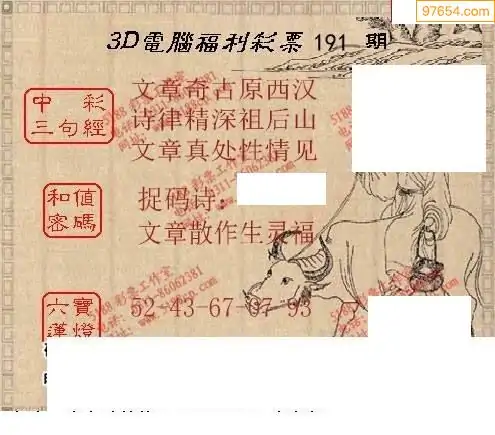 97654.com
3D電腦福利彩票 191 期
中彩
三句經
文章奇古原西汉
诗律精深祖后山
文章真处性情见
和值
密碼
捉码诗:
文章散作生灵福
六寶
蓮燈
52-43-67-07-93
5188彩票工作室